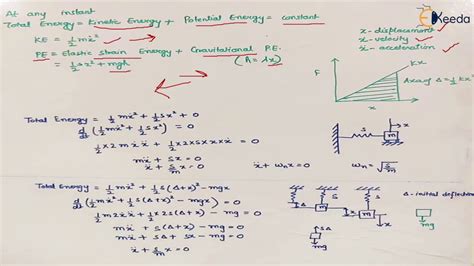 At any instant
Total Energy = Kinetic Energy + Potential Energy = constant
KE = ½mẋ²
PE = Elastic Strain Energy + Gravitational P.E.
= ½sx² + mgh
Ekeeda
x - displacement
ẋ - velocity
ẍ - acceleration
F
Kx
x
Total Energy = ½mẋ² + ½sx² + 0
d/dt(½mẋ² + ½sx²) = 0
mẍ + sx = 0
ẍ + s/m x = 0
ẍ + ωₙx = 0
ωₙ = √(s/m)
s
m
x
Total Energy = ½mẋ² + ½s(Δ+x)² - mgx
d/dt(½mẋ² + ½s(Δ+x)² - mgx) = 0
½m2ẋẍ + ½2s(Δ+x) - mg = 0
mẍ + s(Δ+x) - mg = 0
mẍ + sΔ + sx - mg = 0
ẍ + s/m x = 0
Δ - initial deflection
s
m
m
m
sΔ
mg